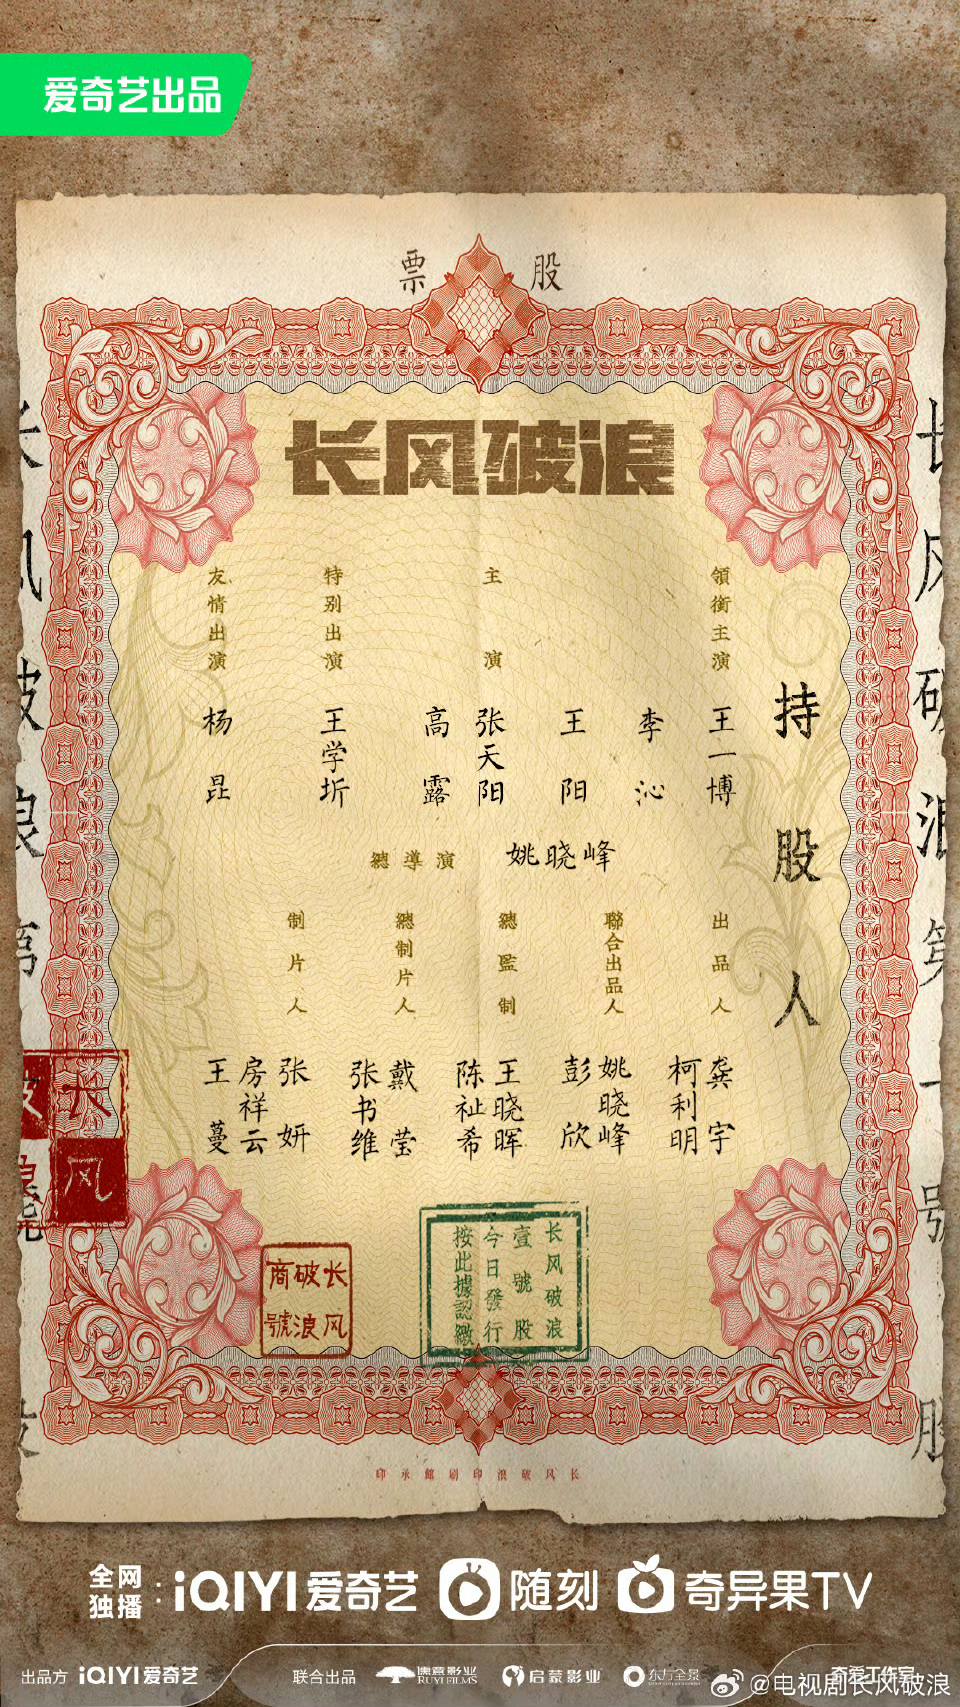 爱奇艺出品
股票
长风破浪
持股人
領銜主演
王一博
李沁
主演
王阳
张天阳
高露
特别出演
王学圻
友情出演
杨昆
總導演
姚晓峰
出品人
龚宇
柯利明
聯合出品人
姚晓峰
彭欣
總監制
王晓晖
陈祉希
總制片人
戴莹
张书维
制片人
张妍
房祥云
王蔓
长风破浪第一号股
长风破浪
长风破浪商號
长风破浪
壹號股
今日發行
按此據認繳
长风破浪印刷館承印
全网独播: iQIYI爱奇艺 随刻 奇异果TV
出品方 iQIYI爱奇艺 联合出品 儒意影业 RUYI FILMS 启蒙影业 东方全景
@电视剧长风破浪